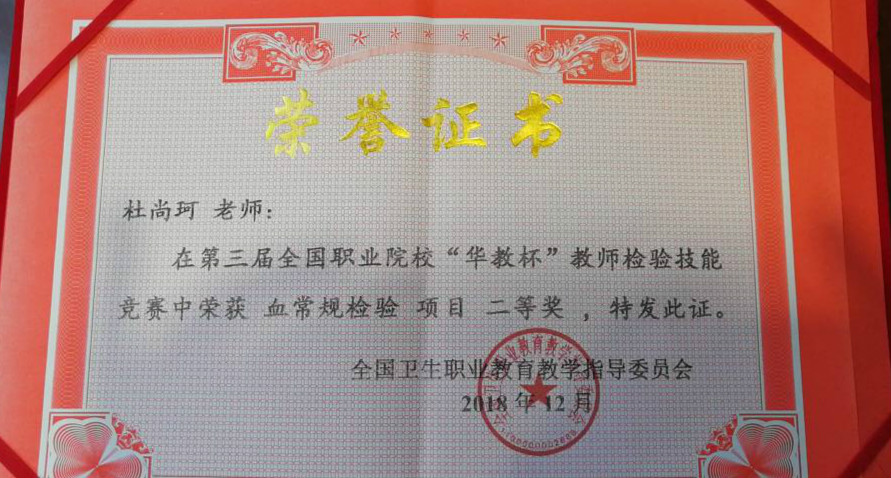 荣誉证书
杜尚珂 老师：
在第三届全国职业院校“华教杯”教师检验技能
竞赛中荣获 血常规检验 项目 二等奖 ，特发此证。
全国卫生职业教育教学指导委员会
2018 年 12 月